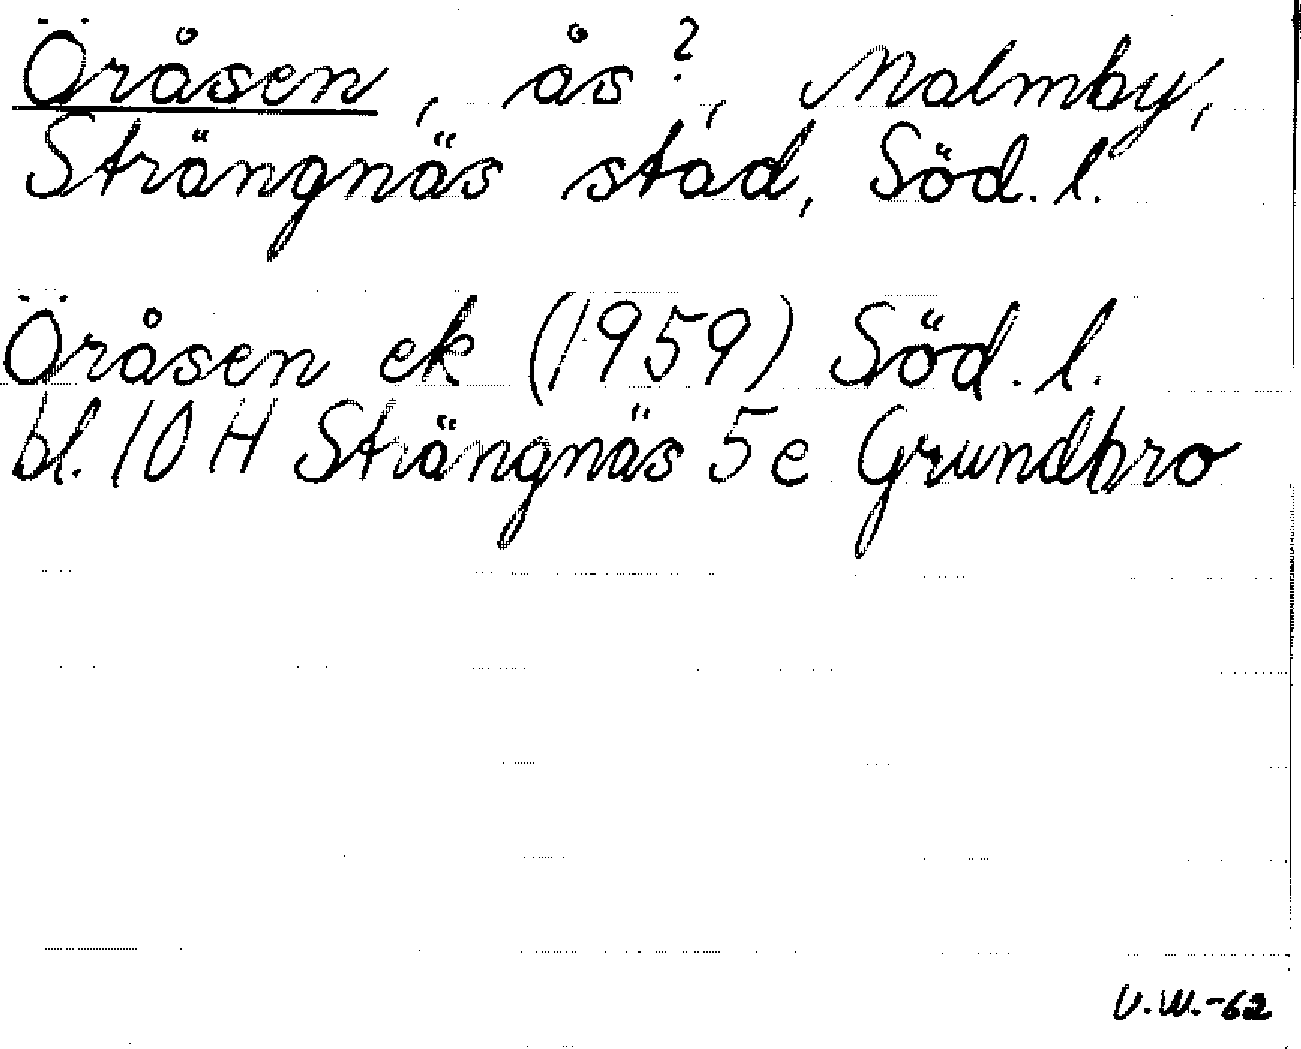 Öråsen, ås?, Malmby,
Strängnäs stad, Söd. l.
Öråsen ek (1959) Söd. l.
bl. 10 H Strängnäs 5e Grundbro
V.W.-62